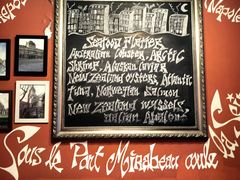 Seafood Platter
Australian Lobster, Arctic
Shrimp, Alaskan Caviar
New Zealand oysters, Atlantic
tuna, Norwegian Salmon
New Zealand mussels,
italian
Sous le Pont Mirabeau coule la